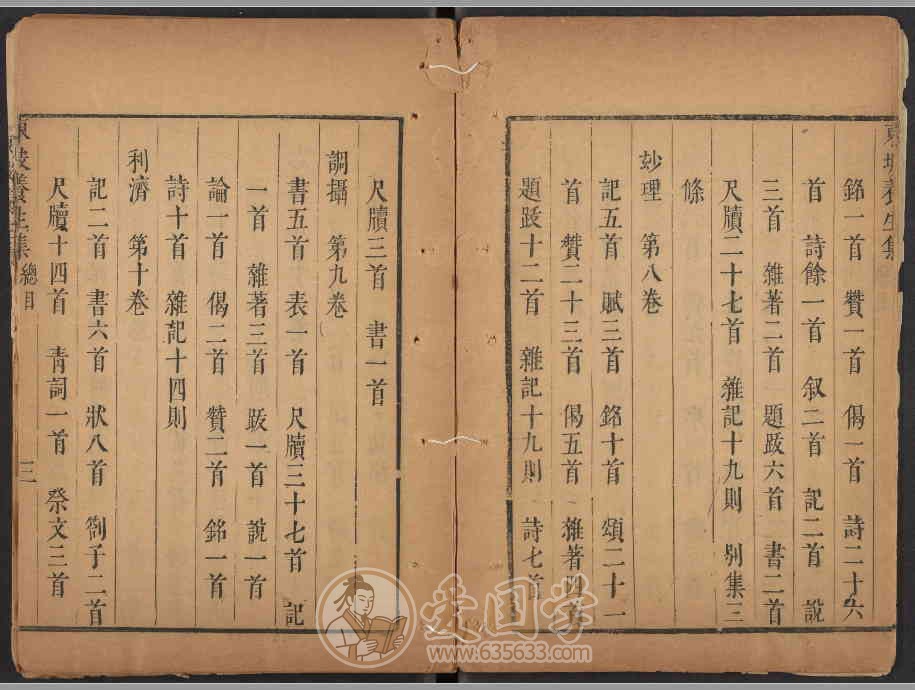 東坡養生集
銘一首　贊一首　偈一首　詩二十六
首　詩餘一首　叙二首　記二首　說
三首　雜著二首　題䟦六首　書二首
尺牘二十七首　雜記十九則　別集三
條
玅理　第八卷
記五首　賦三首　銘十首　頌二十一
首　贊二十三首　偈五首　雜著四首
題䟦十二首　雜記十九則　詩七首
尺牘三首　書一首
調攝　第九卷
書五首　表一首　尺牘三十七首　記
一首　雜著三首　䟦一首　說一首
論一首　偈二首　贊二首　銘一首
詩十首　雜記十四則
利濟　第十卷
記二首　書六首　狀八首　劄子二首
尺牘十四首　青詞一首　祭文三首
東坡養生集　總目　三
爱国学
www.635633.com